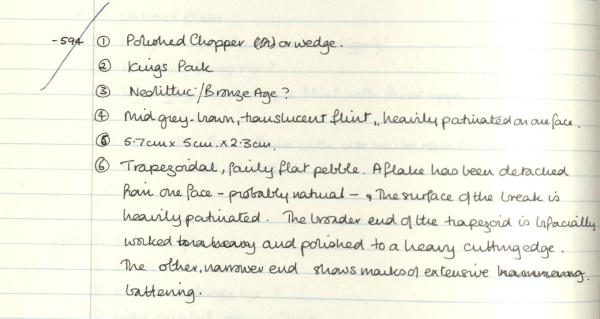 -594 ① Polished Chopper (A) or wedge.
② Kings Park
③ Neolithic/Bronze Age?
④ Mid grey-brown, translucent flint, heavily patinated on one face.
⑤ 5.7cm x 5cm. x 2.3cm.
⑥ Trapezoidal, fairly flat pebble. A flake has been detached
from one face - probably natural - The surface of the break is
heavily patinated. The broader end of the trapezoid is bifacially
worked to a heavy and polished to a heavy cutting edge.
The other, narrower end shows marks of extensive hammering.
battering.